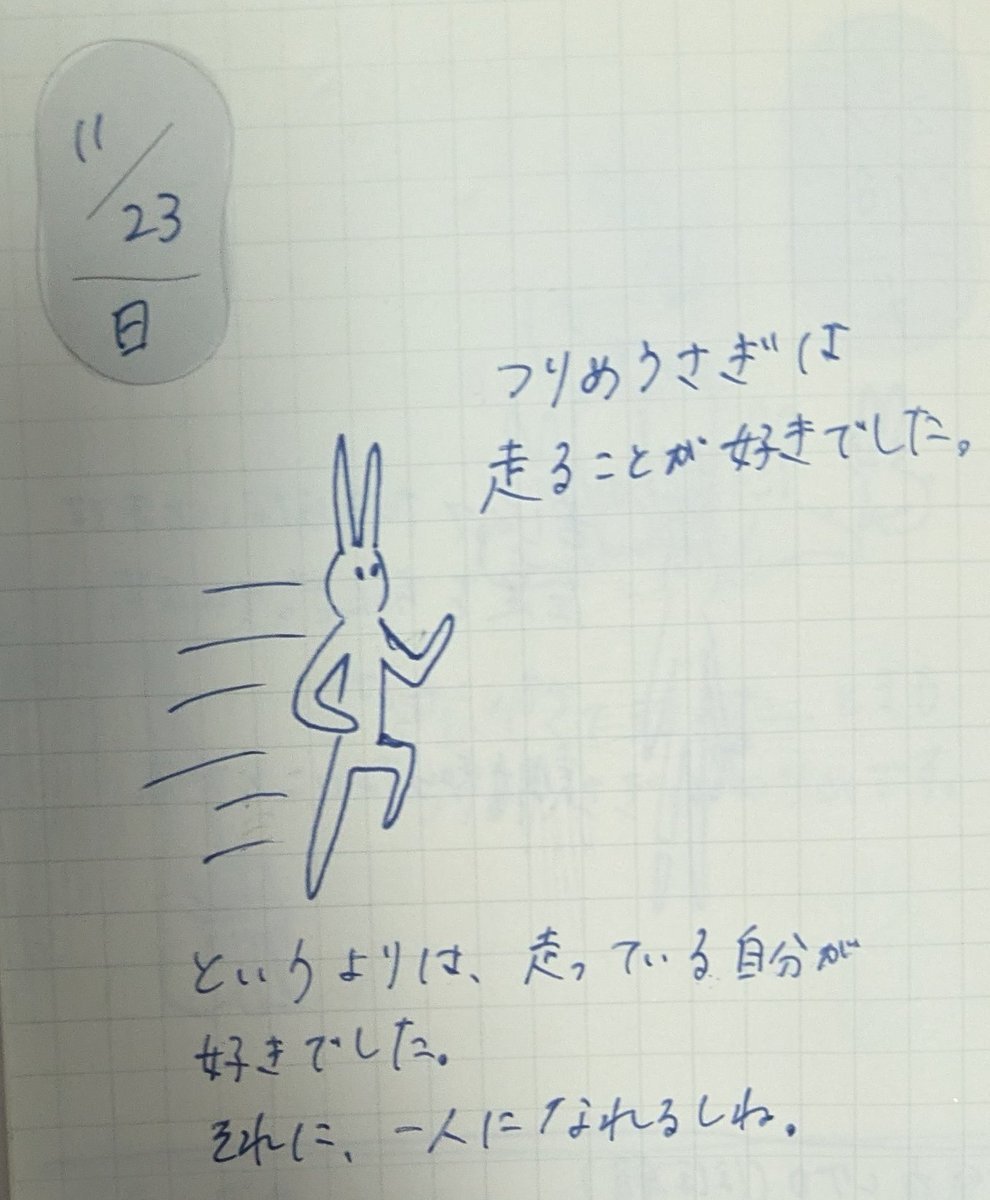 11/23
日
つりめうさぎは
走ることが好きでした。
というよりは、走っている自分が
好きでした。
それに、一人になれるしね。